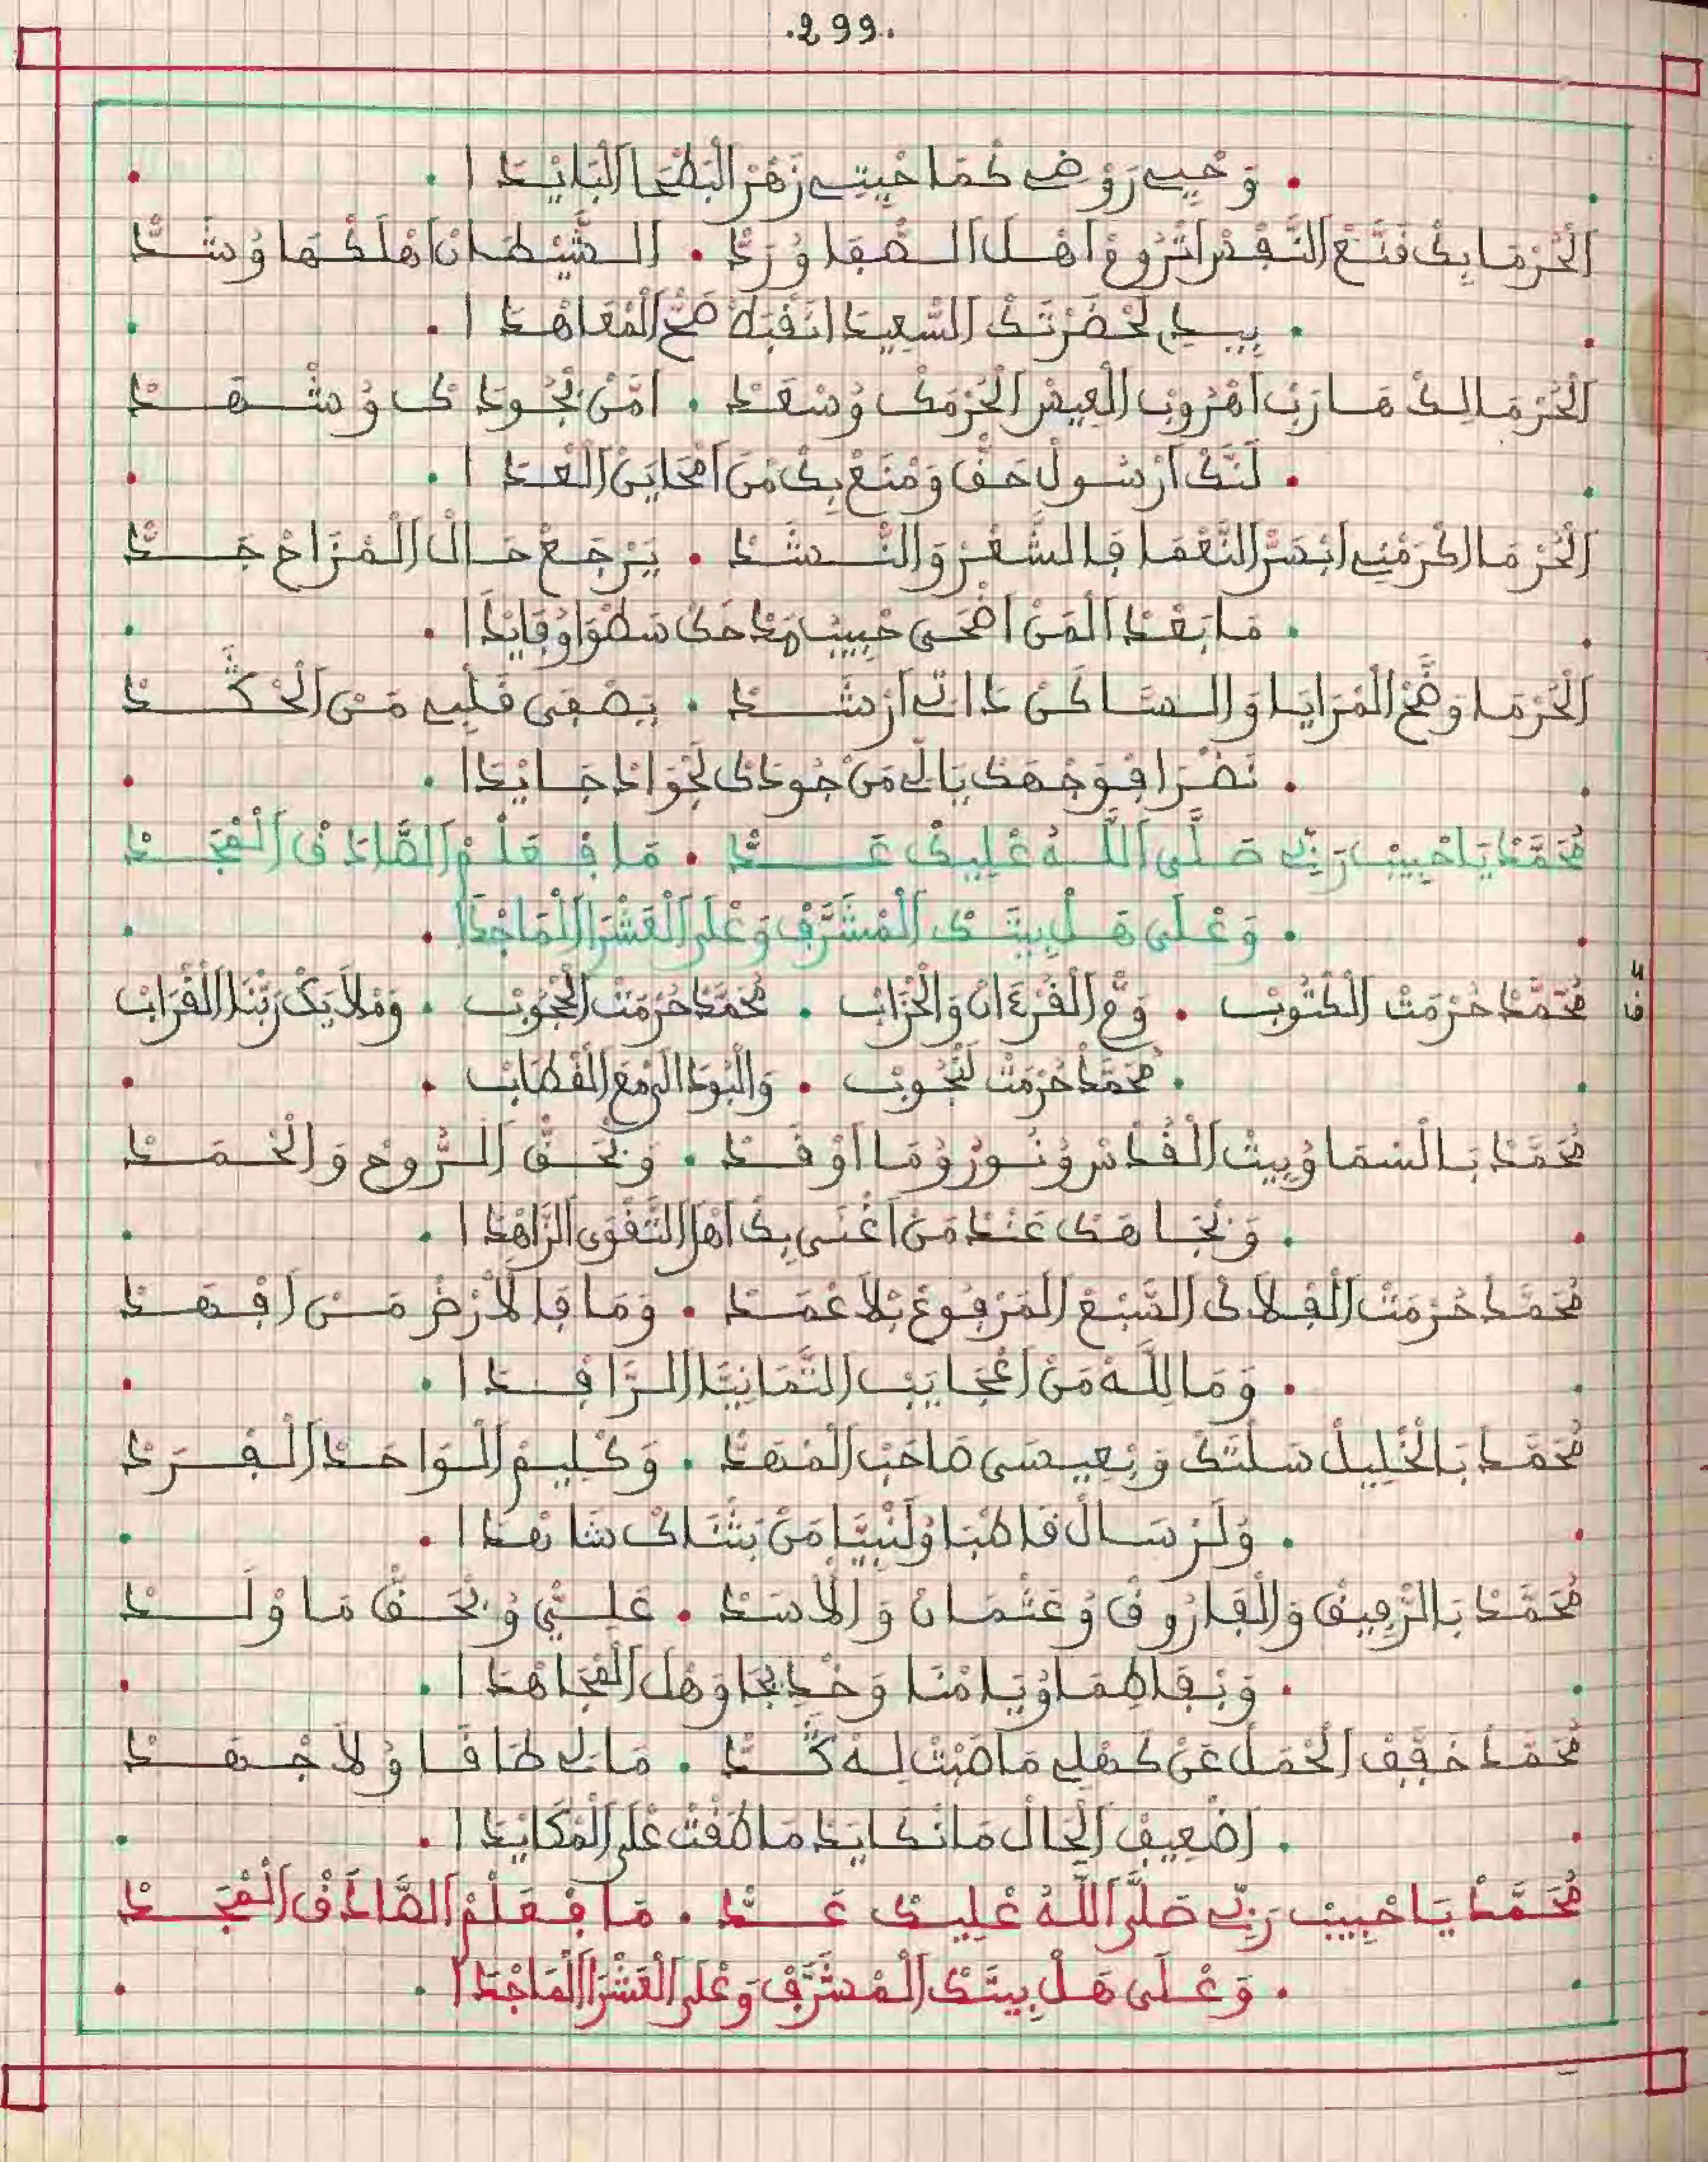 .299.
. وَحْيِي رَوْضِي كْمَا حْيِيتِي زَهْرْ الْبَطْحَا الْبَايْدَا .
الْحُرْمَا بِكْ قَنَّعْ النَّفْسْ اتْرُوغْ اهْلْ الصْفَا وُرَدّْ . الشِّيْطَانْ اهْلَكْهَا وُشَدّْ
. بِيدِي لْحَضْرْتَكْ السْعِيدَا انَقْبَطْ صَحّْ الْمْعَاهْدَا .
الْحُرْمَا لِكْ هَارَبْ اهْرُوبْ الْعِيسْ الْحُرْمَكْ وُسْعَدْ . امَّنْ بْجُودَكْ وُشْهَدْ
. لَنَّكْ ارْسُولْ حَقّْ وَمْنَعْ بِكْ مَنْ امْحَايَنْ الْعْدَا .
الْحُرْمَا اكْرَمْنِي ابْسَرّْ النَّعْمَا فَالشّْعَرْ وَالنّْشَدْ . يَرْجَعْ حَالْ الْمْزَاحْ جَدّْ
. مَا بَعْدْ الْمَنْ اضْحَى حْبِيبْ مَدْحَكْ سَطْوَا وُفَايْدَا .
الْحُرْمَا وَضَّحْ الْمْرَايَا وَالسَّاكَنْ ذَاتِي ارْشَدْ . يَصْفَى قَلْبِي مَنْ الْحْكَدْ
. نَضْرَا فُوَجْهَكْ يَالِي مَنْ جُودَكْ لَجْوَادْ جَايْدَا .
مُحَمَّدْ يَا حْبِيبْ رَبِّي صَلَّى اللَّهُ عْلِيكْ عَدّْ . مَا فِعَلْمْ الصَّادَقْ الْمْجَدْ
. وَعْلَى هَلْ بِيتَكْ الْمْشَرَّفْ وَعْلَى الْعَشْرَا الْمَاجْدَا .
فْ مُحَمَّدْ حُرْمَتْ الْكْتُوبْ . وَمّْ الْقُرْءَانْ وَالْحْزَابْ . مُحَمَّدْ حُرْمَتْ الْحْجُوبْ . وَمْلَايَكْ رَبّْنَا الْقْرَابْ
. مُحَمَّدْ حُرْمَتْ لَنْجُوبْ . وَالْبُودَالِي مْعَ الْقْطَابْ .
مُحَمَّدْ بَالسْمَا وُبِيتْ الْقُدْسْ وُنُورُو وُمَا اوْقَدْ . وَبْحَقّْ الرُّوحْ وَالْحْمَدْ
. وَبْجَاهَكْ عَنْدْ مَنْ اغْنَى بِكْ اهْلْ التَّقْوَى الزَّاهْدَا .
مُحَمَّدْ حُرْمَتْ الْفْلَاكْ السَّبْعْ الْمَرْفُوعْ بْلَا عْمَدْ . وَمَا فَالَارْضْ مَنْ افْهَدْ
. وَمَا لِلَّهْ مَنْ اعْجَايَبْ التّْمَانْيَا الرَّافْدَا .
مُحَمَّدْ بَالْخْلِيلْ سَلْتَكْ وَبْعِيسَى صَاحَبْ الْمْهَدّْ . وَكْلِيمْ الْوَاحَدْ الْفْرَدْ
. وَلَرْسَالْ قَاطْبَا وُلَنْبِيَّا مَنْ بَثْنَاكْ شَاهْدَا .
مُحَمَّدْ بَالرّْفِيقْ وَالْفَارُوقْ وُعَثْمَانْ وَالَاسَدْ . عَلِيّْ وُبْحَقّْ مَا وْلَدْ
. وَبْفَاطِمَا وُيَامْنَا وَخْدِيجَا وَهْلْ الْمْجَاهْدَا .
مُحَمَّدْ خَفِّفْ الْحْمَلْ عَنْ كَهْلِي مَا صَبْتْ لِهْ كَدّْ . مَالِي طَاقَا وُلَا جْهَدْ
. اضْعِيفْ الْحَالْ مَا نْكَايَدْ مَا طَقْتْ عْلَى الْمْكَايْدَا .
مُحَمَّدْ يَا حْبِيبْ رَبِّي صَلَّى اللَّهُ عْلِيكْ عَدّْ . مَا فِعَلْمْ الصَّادَقْ الْمْجَدْ
. وَعْلَى هَلْ بِيتَكْ الْمْشَرَّفْ وَعْلَى الْعَشْرَا الْمَاجْدَا .